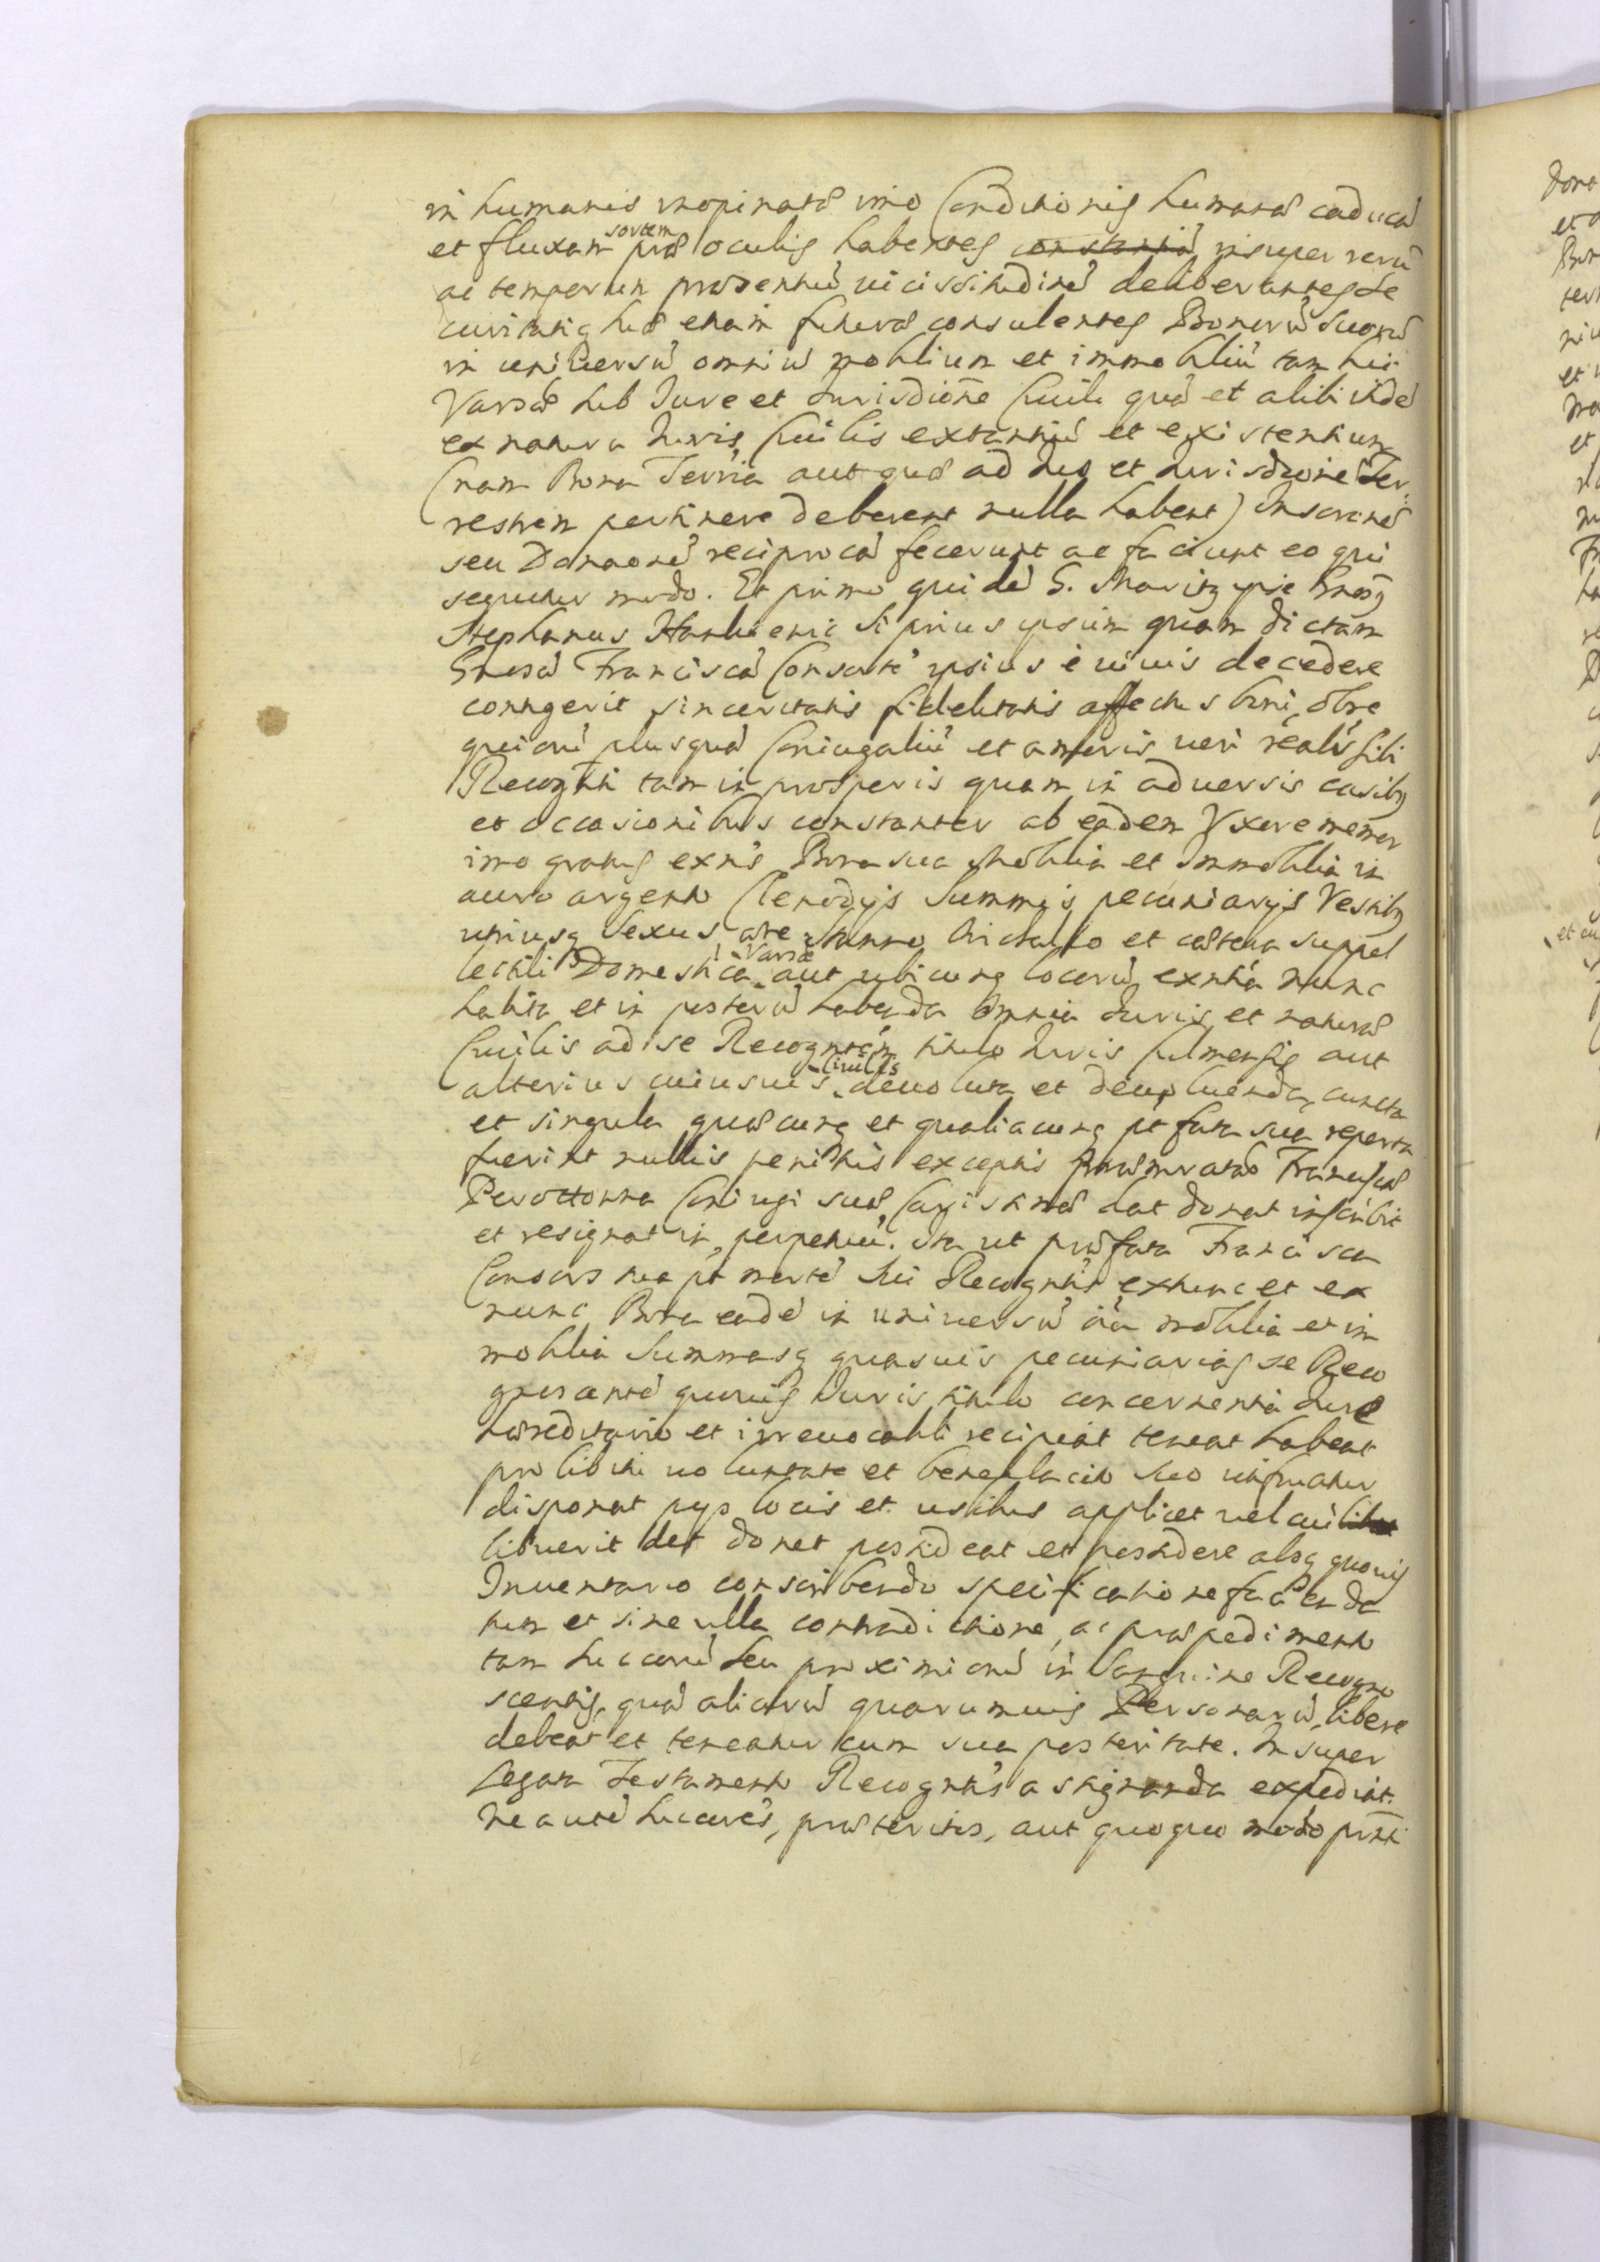 in humanis inopinatã imo Conditionis humanæ caducã
et fluxam sortem præ oculis habentes constantiã insuper rerũ
ac temporum præsentiũ vicissitudinẽ deliberantes Se
curitatiq suæ etiam futuræ consulentes Bonorũ Suorũ
in universũ omniũ mobilium et immobiliũ tam hic
Varsæ sub Jure et Jurisdicõne Civili quã et alibi ubiꝗ
ex natura Juris Civilis extantiũ et existentium
(nam Bona Terrria aut quæ ad Jus et Jurisdictionẽ Ter
restrem pertinere deberent nulla habent) Inscronẽ
seu Donaonẽ reciprocã fecerunt ac faciunt eo qui
sequitur modo. Et primo quidẽ G. Maritꝗ ipse Gnosꝗ
Stephanus Hankiewic si prius ipsum quam dictam
Gnosã Franciscã Consortẽ ipsius è vivis decedere
contigerit sinceritatis fidelitatis affectus boni obse
quiorũ plusquã Coniugaliũ et amoris veri realis sibi
Recognti tam in prosperis quam in adversis casibꝗ
et occasionibus constanter ab eadem Uxore memor
imo gratus exñs Bona sua Mobilia et Immobilia in
auro argento Clenodijs Summis pecuniarijs Vestibꝗ
utriusq Sexus ære Stanno Orichalco et cætera suppel
lectili Domestica Varsæ aut ubicunq locorũ exntia nunc
habita et in posterũ habenda Omnia Juris et naturæ
Civilis ad se Recogntẽm titulo Juris Culmensis aut
alterius cuiusvis Civilis devoluta et devolvenda cuncta
et singula quæcunq et qualiacunq pt fata sua reperta
fuerint nullis penitus exceptis præmoratæ Franciscæ
Perottonna Coniugi suæ Carissimæ dat donat inscribit
et resignat in perpetuũ. Ita ut præfata Francisca
Consors sua pt mortẽ sui Recogntis extunc et ex
nunc Bona eadẽ in universũ oĩa mobilia et im
mobilia Summasq quasvis pecuniarias se Reco
gnoscentẽ quovis Juris titulo concernentia Jure
hæreditario et irrevocabili recipiat teneat habeat
pro libitu voluntate et beneplacito suo utifruatur
disponat pijs locis et usibus applicet vel cui libet
libuerit det donet possideat et possidere absq quovis
Inventario conscribendo specificatione facienda
tum et sine ulla contradictione, ac præpedimento
tam Succorũ seu proximiorũ in Sanguine Recogno
scentis, quã aliorũ quorumvis Personarũ libere
debeat et teneatur cum sua posteritate. Insuper
Legata Testamento Recogntis assignanda expediat.
Ne autẽ Succores, præteritos, aut quoquo modo prnti